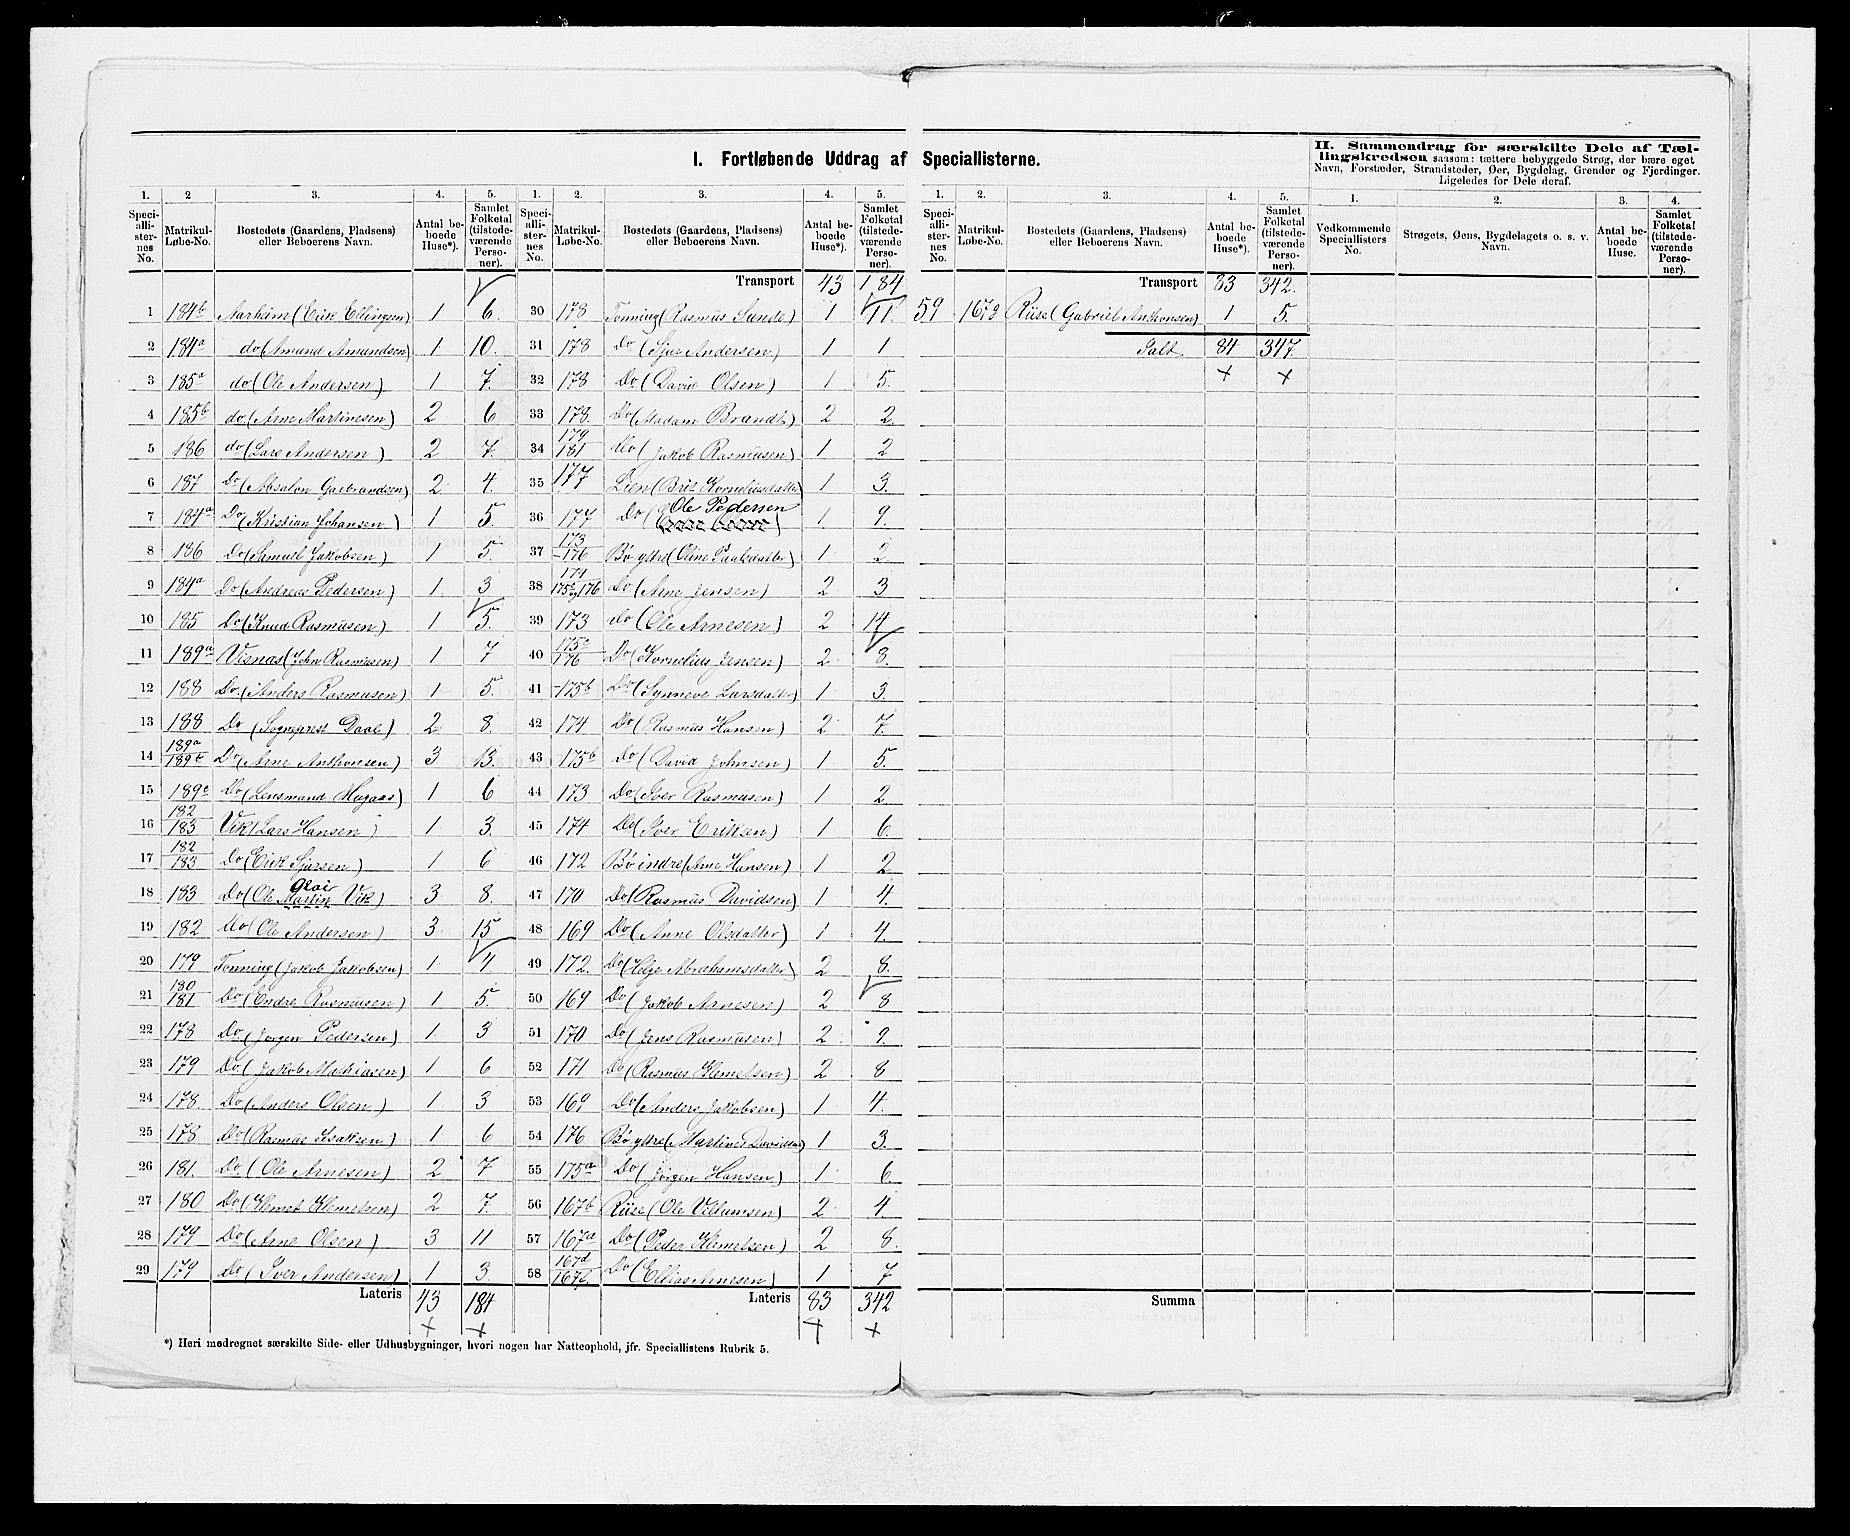 I. Fortløbende Uddrag af Speciallisterne.
II. Sammendrag for særskilte Dele af Tællingskredsen saasom: tættere bebyggede Strøg, der bære eget Navn, Forstæder, Strandsteder, Øer, Bygdelag, Grender og Fjerdinger. Ligeledes for Dele deraf.
1. 2 3. 4. 5.
Speciallisternes No. Matrikul-Løbe-No. Bostedets (Gaardens, Pladsens) eller Beboerens Navn. Antal beboede Huse*). Samlet Folketal (tilstedeværende Personer).
1 184b Aarheim (Erik Ellingsen) 1 6.
2 184a do (Amund Amundsen) 1 10.
3 185a do (Ole Andersen) 1 7.
4 185b do (Arne Martinesen) 2 6
5 186 do (Lars Andersen) 2 7.
6 187 Do (Absalon Garbrandsen) 2 4.
7 184a Do (Kristian Johansen) 1 5.
8 186 Do (Samuel Jakobsen) 1 5.
9 184a Do (Andreas Pedersen) 1 3
10 185 Do (Knud Rasmusen) 1 5.
11 189a Visnas (John Rasmusen) 1 7
12 188 Do (Anders Rasmusen) 1 5.
13 188 Do (Sogneprest Daae) 2 8.
14 189a/189b Do (Arne Anthonsen) 3 13.
15 189c Do (Lensmand Hugaas) 1 6
16 182/183 Vik (Lars Hansen) 1 3.
17 182/183 Do (Erik Sjursen) 1 6
18 183 Do (Ole Martin Vik) 3 8.
19 182 Do (Ole Andersen) 3 15
20 179 Tonning (Jakob Jakobsen) 1 4.
21 180/181 Do (Endre Rasmusen) 1 5.
22 178 Do (Jørgen Pedersen) 1 3
23 179 Do (Jakob Mathiasen) 1 6
24 178. Do (Anders Olsen) 1 3
25 178 Do (Rasmus Isaksen) 1 6
26 181. Do (Ole Arnesen) 2 7
27 180 Do (Klemet Klemetsen) 2 7.
28 179 Do (Arne Olsen) 3 11
29 179 Do (Iver Andersen) 1 3.
Lateris 43 184
1. 2. 3. 4. 5.
Speciallisternes No. Matrikul-Løbe-No. Bostedets (Gaardens, Pladsens) eller Beboerens Navn. Antal beboede Huse*). Samlet Folketal (tilstedeværende Personer).
Transport 43 184
30 178 Tonning (Rasmus Sunde) 1 11.
31 178 Do (Sjur Andersen) 1 1
32 178 Do (David Olsen) 1 5.
33 178. Do (Madam Brandt) 2 2.
34 179/181 Do (Jakob Rasmusen) 1 2
35 177 Lien (Brit Korneliusdatter) 1 3.
36 177 Do (Ole Pedersen) 1 9.
37 173/176 Bø ytre (Oline Paulsdatter) 1 2
38 174 175c og 176 Do (Arne Jensen) 2 3
39 173 do (Ole Arnesen) 2 14
40 175c/176 Do (Kornelius Jensen) 2 8.
41 175b Do (Synneve Larsdatter) 1 3.
42 174 Do (Rasmus Hansen) 2 7.
43 175b do (David Johnsen) 1 5.
44 173 Do (Iver Rasmusen) 1 2
45 174 Do (Iver Eriksen) 1 6.
46 172 Bø indre (Arne Hansen) 1 2
47 170 Do (Rasmus Davidsen) 1 4.
48 169 Do (Anne Olsdatter) 1 4.
49 172. Do (Helge Abrahamsdatter) 2 8.
50 169 Do (Jakob Arnesen) 2 8
51 170 Do (Jens Rasmusen) 2 9.
52 171 Do (Rasmus Klemetsen) 2 8
53 169 Do (Anders Jakobsen) 1 4.
54 176 Bø ytre (Martines Davidsen) 1 3.
55 175a Do (Jørgen Hansen) 1 6
56 167b Riise (Ole Villumsen) 2 4
57 167a Do (Peder Klemetsen) 2 8.
58 167d Do (Ellias Arnesen) 1 7
Lateris 83 342
1. 2. 3. 4. 5.
Speciallisternes No. Matrikul-Løbe-No. Bostedets (Gaardens, Pladsens) eller Beboerens Navn. Antal beboede Huse*). Samlet Folketal (tilstedeværende Personer).
Transport 83 342.
59 Riise (Gabriel Anthonsen) 1 5.
Talt 84 347.
Summa
1. 2. 3. 4.
Vedkommende Speciallisters No. Strøgets, Øens, Bygdelagets o. s. v. Navn. Antal beboede Huse. Samlet Folketal (tilstedeværende Personer).
*) Heri medregnet særskilte Side- eller Udhusbygninger, hvori nogen har Natteophold, jfr. Speciallistens Rubrik 5.